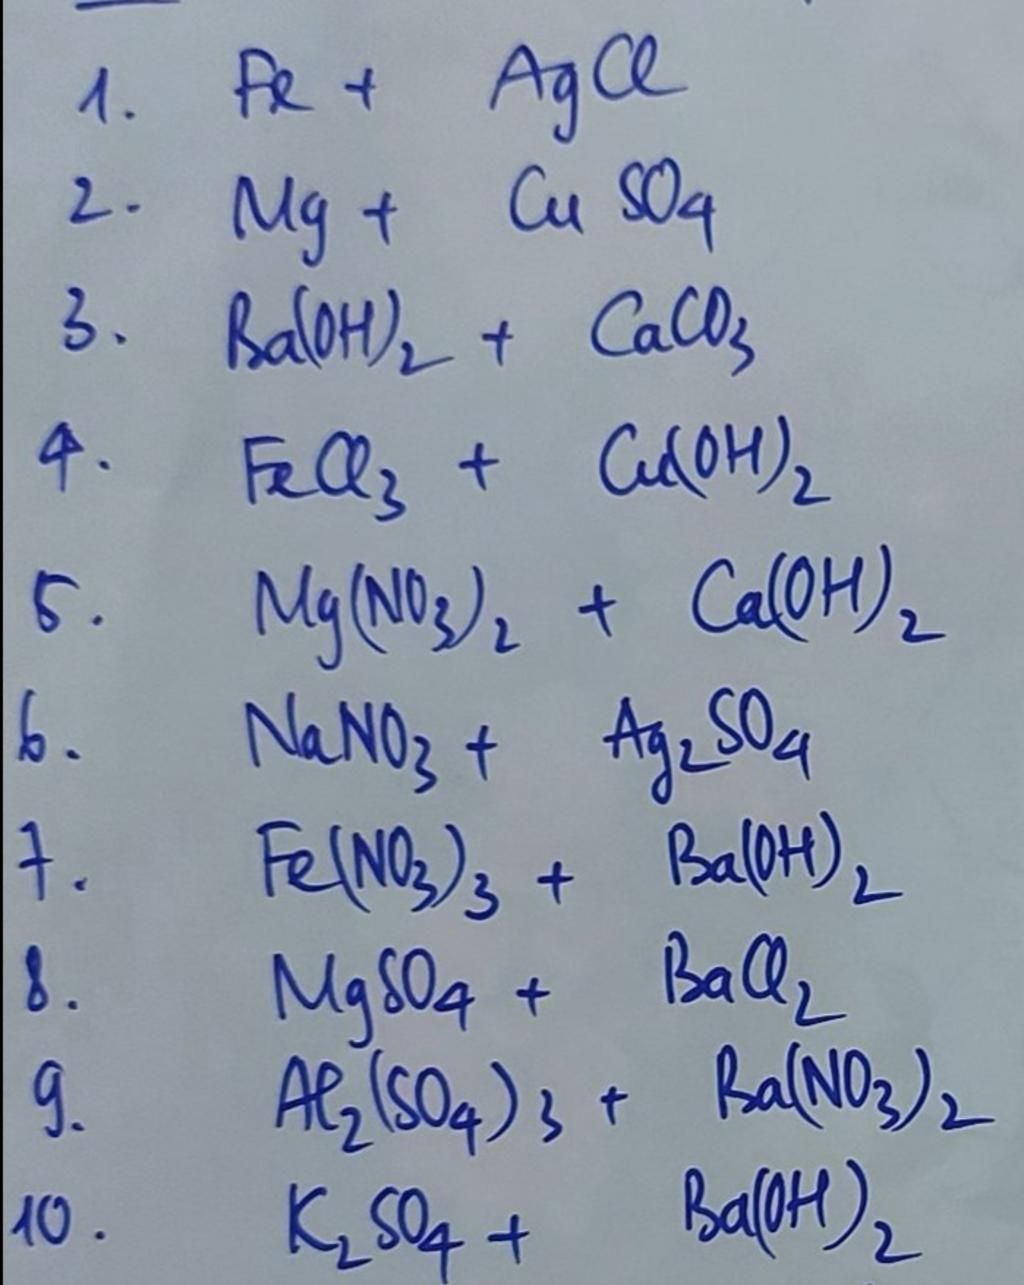 1. Fe + AgCl
2. Mg + CuSO4
3. Ba(OH)2 + CaCO3
4. FeCl3 + Cu(OH)2
5. Mg(NO3)2 + Ca(OH)2
6. NaNO3 + Ag2SO4
7. Fe(NO3)3 + Ba(OH)2
8. MgSO4 + BaCl2
9. Al2(SO4)3 + Ba(NO3)2
10. K2SO4 + Ba(OH)2